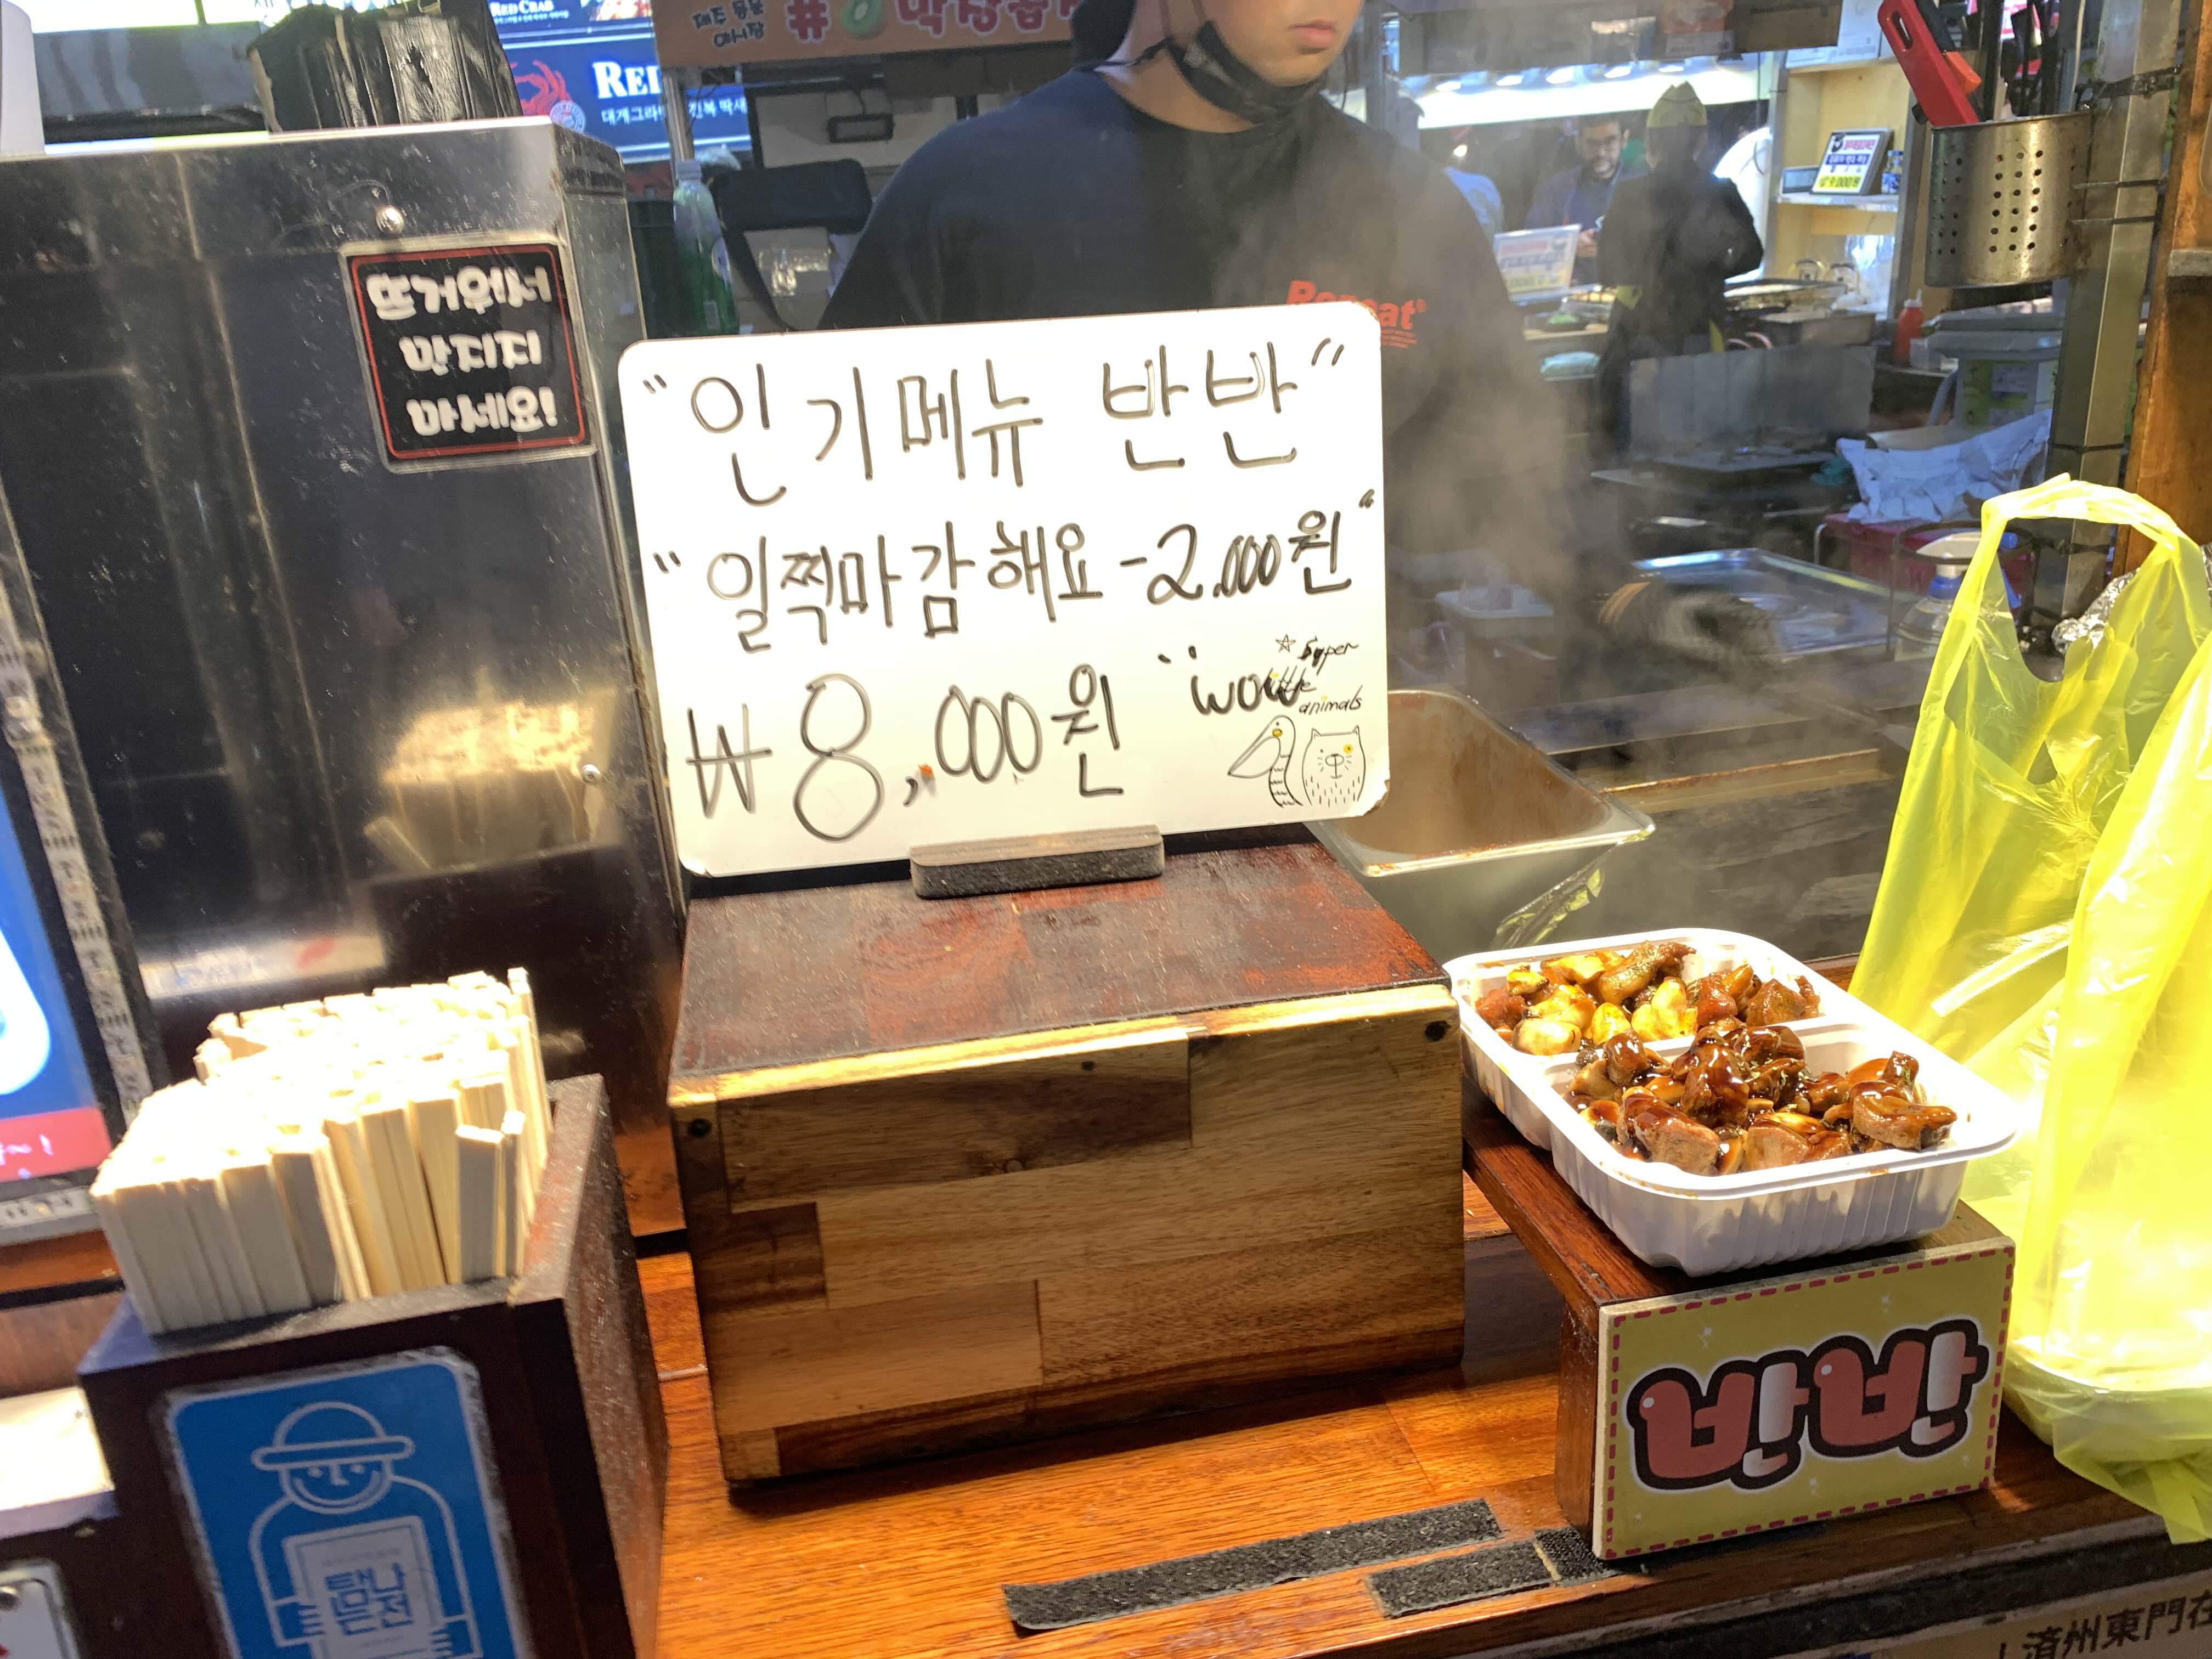 RED CRAB
제주 동문
야시장
뜨거워서
만지지
마세요!
"인기메뉴 반반"
"일찍마감해요 -2.000원"
₩8,000원
"wow
☆ Super
little
animals
반반
탐나는전
9,000원
済州東門